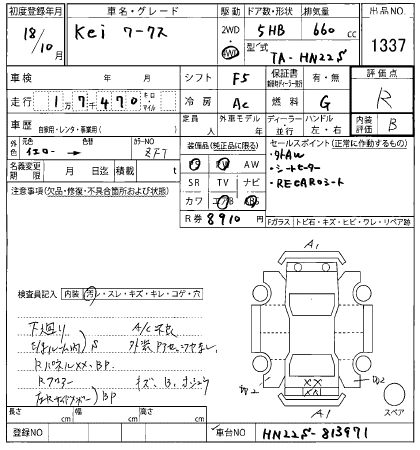 初度登録年月 車名・グレード 駆動 ドア数・形状 排気量 出品NO.
18/10月 Kei ワークス 2WD 4WD 5HB 660 cc
型式 TA-HN22S 1337
車検 年 月 シフト F5 保証書 有・無 評価点
走行 1万7千470 キロ・マイル 冷房 AC 燃料 G R
車歴 自家用・レンタ・事業用( ) 定員 人 外車モデル 年 ディーラー 並行 ハンドル 左・右 内装評価 B
外色 元色 イエロー→ 色替 カラーNO ZF7
装備品(純正品に限る) セールスポイント(正常に作動するもの)
PS PW AW ・外AW
名義変更期限 月 日迄 積載 t SR TV ナビ ・シートヒーター
カワ エアB ABS ・RECAROシート
注意事項(欠品・修復・不具合箇所および状態)
R券 8910 円 Fガラス トビ石・キズ・ヒビ・ワレ・リペア跡
A1
検査員記入 内装 汚レ・スレ・キズ・キレ・コゲ・穴
下廻り A/C不良
S
RパネルXX、BP
Rフロアー キズ、B、
BP
XX
A1
スペア
長さ cm 幅 cm 高さ cm
登録NO 車台NO HN22S-813971